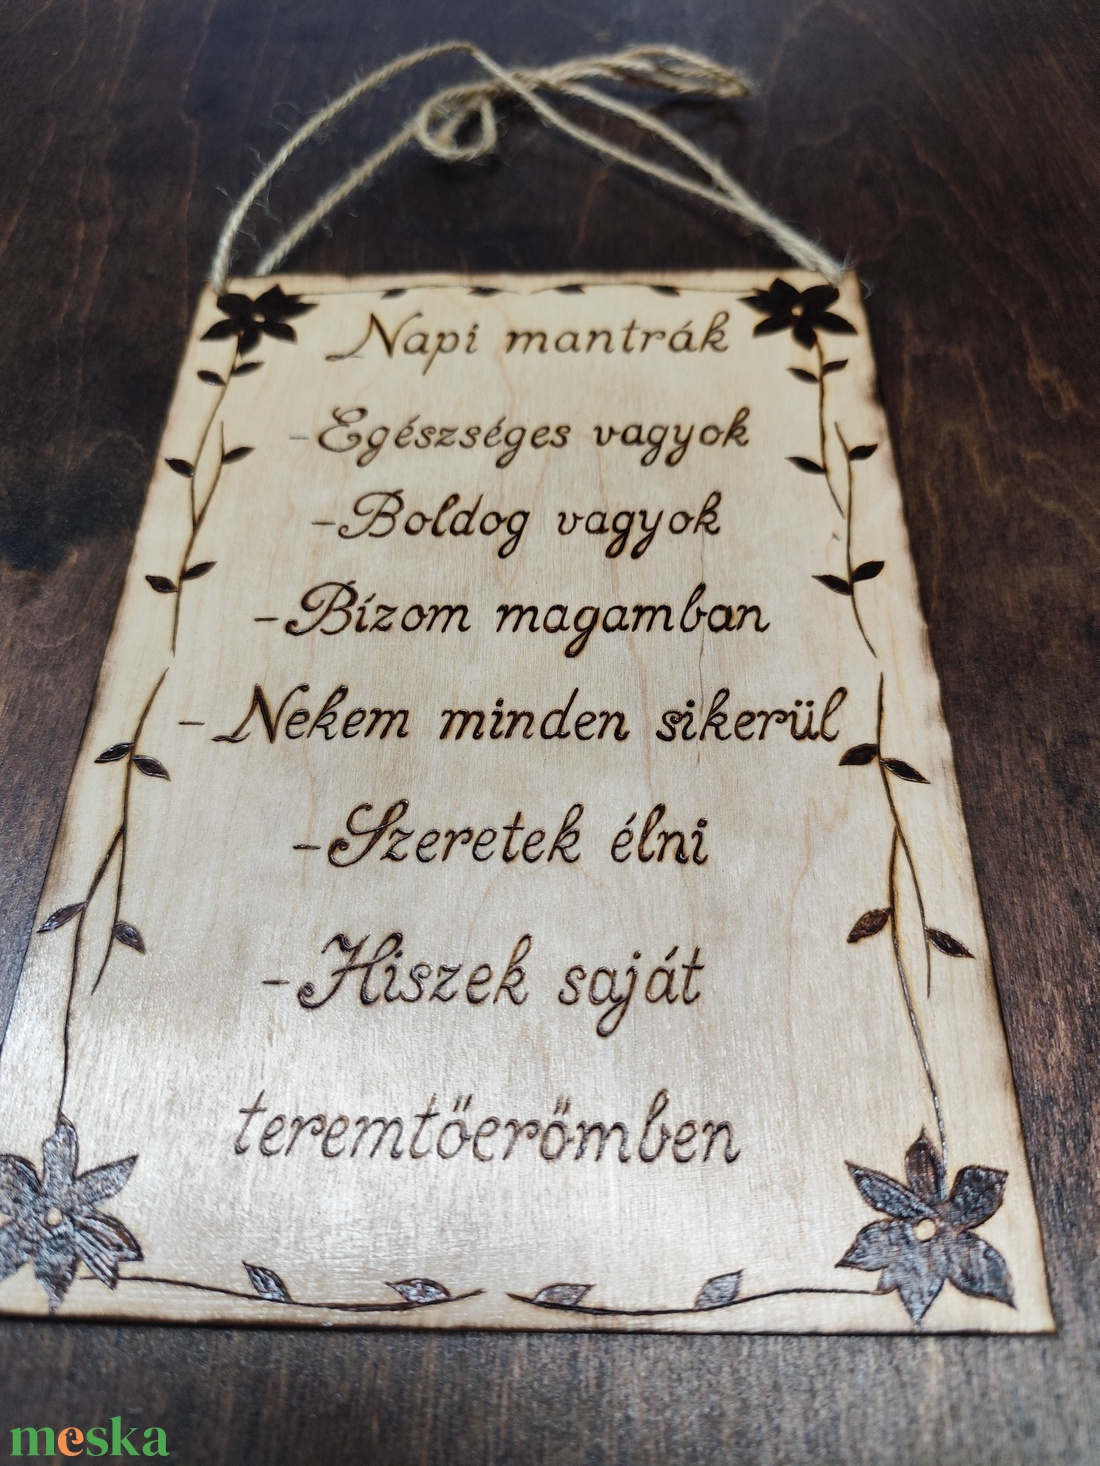 Napi mantrák
-Egészséges vagyok
-Boldog vagyok
-Bízom magamban
- Nekem minden sikerül
-Szeretek élni
-Hiszek saját
teremtőerőmben
meska